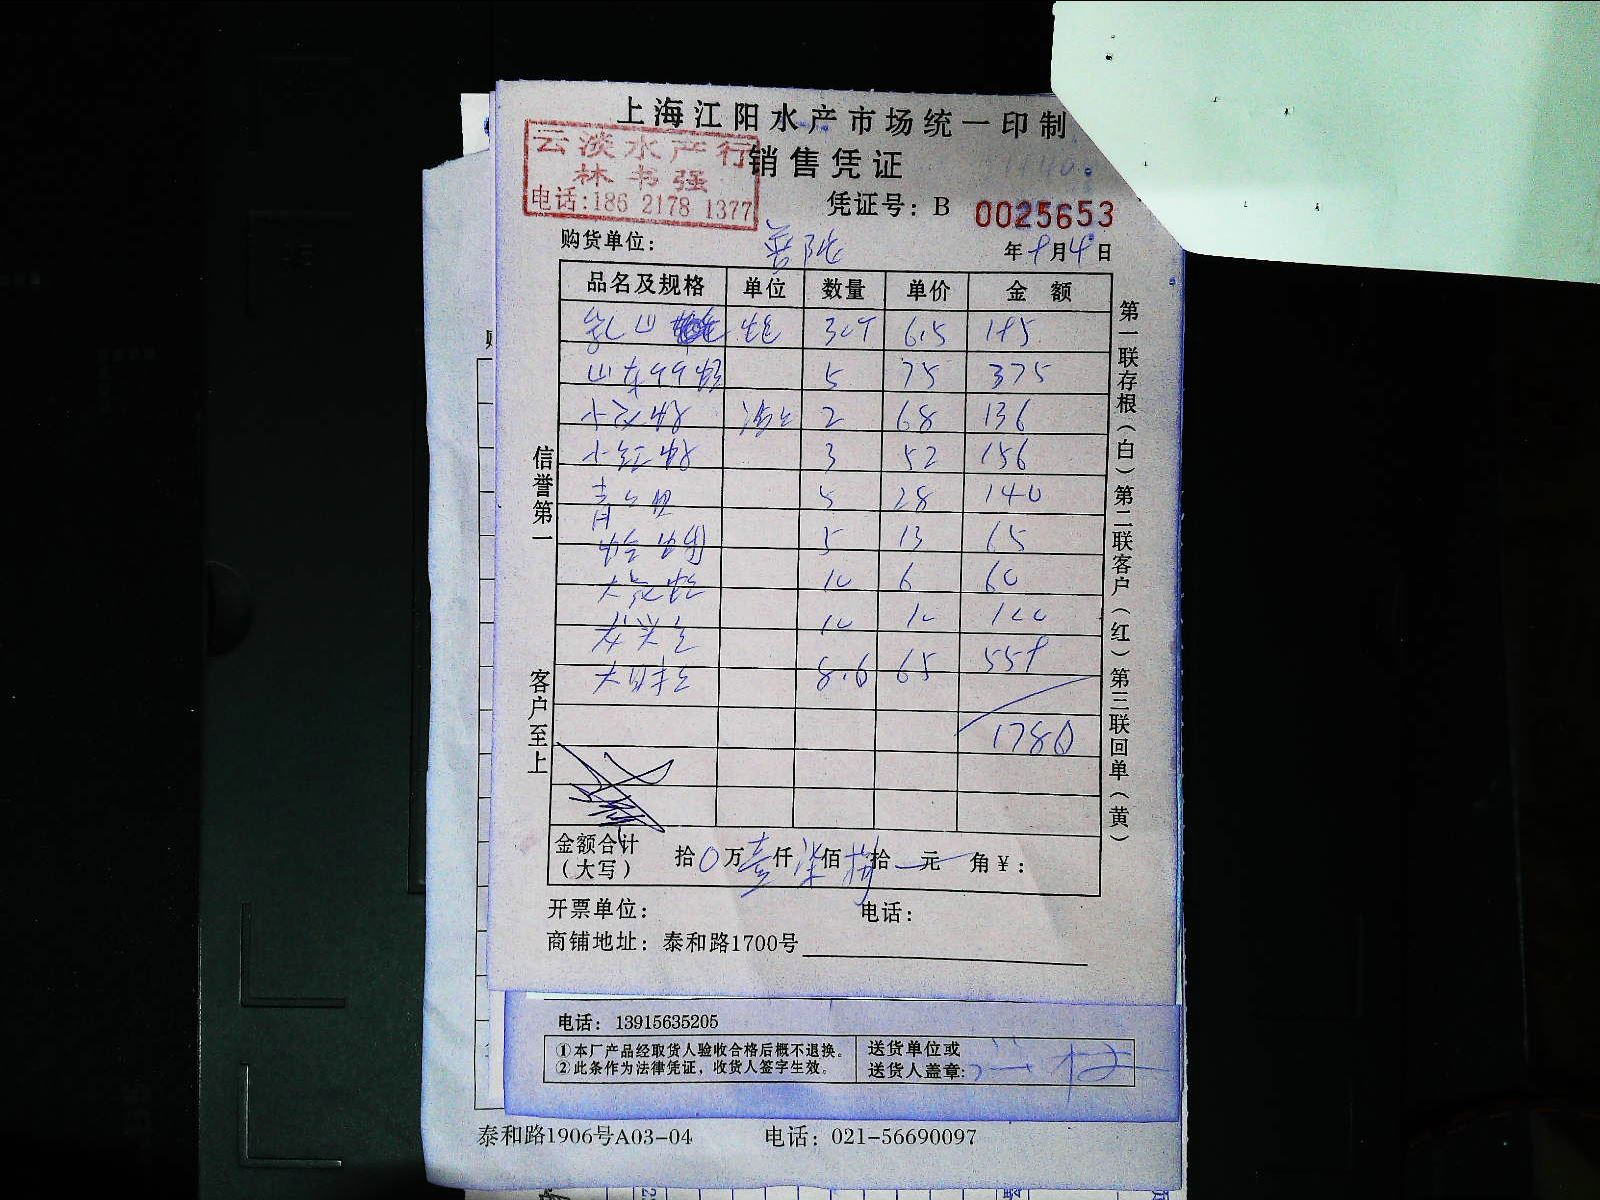 上海江阳水产市场统一印制
云淡水产行
销售凭证
林书强
电话:186 2178 1377
凭证号：B 0025653
购货单位：普陀
年 月4日
品名及规格 单位 数量 单价 金额
乳山 6.5 195
山东 5 75 375
小 2 68 136
小红 3 52 156
青口贝 5 28 140
5 13 65
大 10 6 60
10 10 100
大 8.6 65 559
1780
金额合计
（大写） 拾0万壹仟柒佰捌拾一元 角￥：
开票单位： 电话：
商铺地址：泰和路1700号
信誉第一
客户至上
第一联存根（白）第二联客户（红）第三联回单（黄）
电话：13915635205
①本厂产品经取货人验收合格后概不退换。
②此条作为法律凭证，收货人签字生效。
送货单位或
送货人盖章：
泰和路1906号A03-04 电话：021-56690097